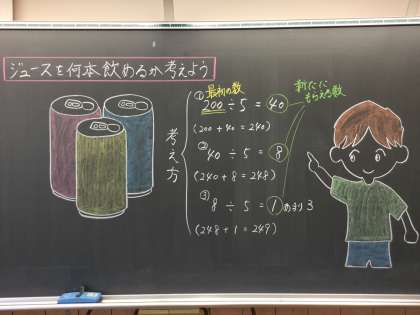 ジュースを何本飲めるか考えよう
考え方
① 最初の数
200 ÷ 5 = 40
(200 + 40 = 240)
②
40 ÷ 5 = 8
(240 + 8 = 248)
③
8 ÷ 5 = 1 あまり 3
(248 + 1 = 249)
新たに
もらえる数